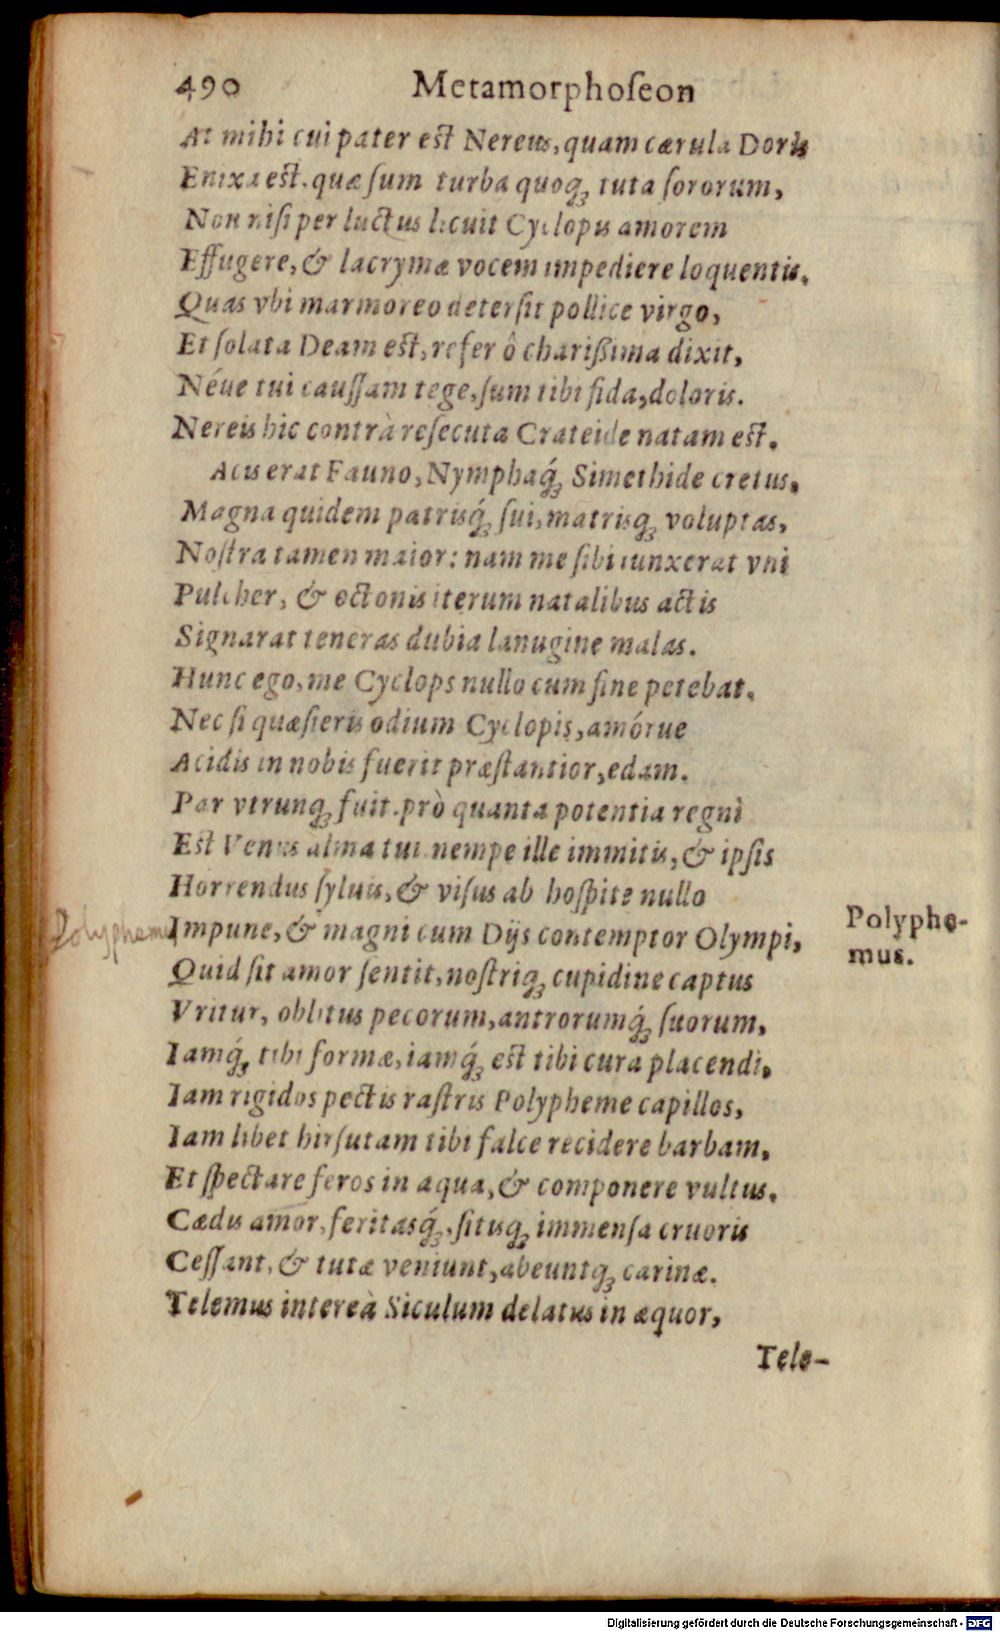 490 Metamorphoſeon
At mihi cui pater est Nereus, quam cærula Doris
Enixa est. quæ ſum turba quoq; tuta ſororum,
Non niſi per luctus licuit Cyclopis amorem
Effugere, & lacrymæ vocem impediere loquentis.
Quas vbi marmoreo deterſit pollice virgo,
Et ſolata Deam est, refer ô charißima dixit,
Néue tui cauſſam tege, ſum tibi fida, doloris.
Nereis hic contrà reſecuta Crateide natam est.
Acis erat Fauno, Nymphaq́; Simethide cretus.
Magna quidem patrisq́; ſui, matrisq; voluptas,
Noſtra tamen maior: nam me ſibi iunxerat vni
Pulcher, & octonis iterum natalibus actis
Signarat teneras dubia lanugine malas.
Hunc ego, me Cyclops nullo cum fine petebat.
Nec ſi quæſieris odium Cyclopis, amórue
Acidis in nobis fuerit præſtantior, edam.
Par vtrunq; fuit. prò quanta potentia regni
Est Venus alma tui. nempe ille immitis, & ipſis
Horrendus ſyluis, & viſus ab hoſpite nullo
Polypheme Impune, & magni cum Dijs contemptor Olympi,
Polyphe-
mus.
Quid ſit amor ſentit, noſtriq; cupidine captus
Vritur, oblitus pecorum, antrorumq́; ſuorum,
Iamq́; tibi formæ, iamq́; est tibi cura placendi.
Iam rigidos pectis raſtris Polypheme capillos,
Iam libet hirſutam tibi falce recidere barbam,
Et ſpectare feros in aqua, & componere vultus.
Cædis amor, feritasq́;, ſitisq; immenſa cruoris
Ceſſant, & tutæ veniunt, abeuntq; carinæ.
Telemus intereà Siculum delatus in æquor,
Tele-
Digitalisierung gefördert durch die Deutsche Forschungsgemeinschaft - DFG